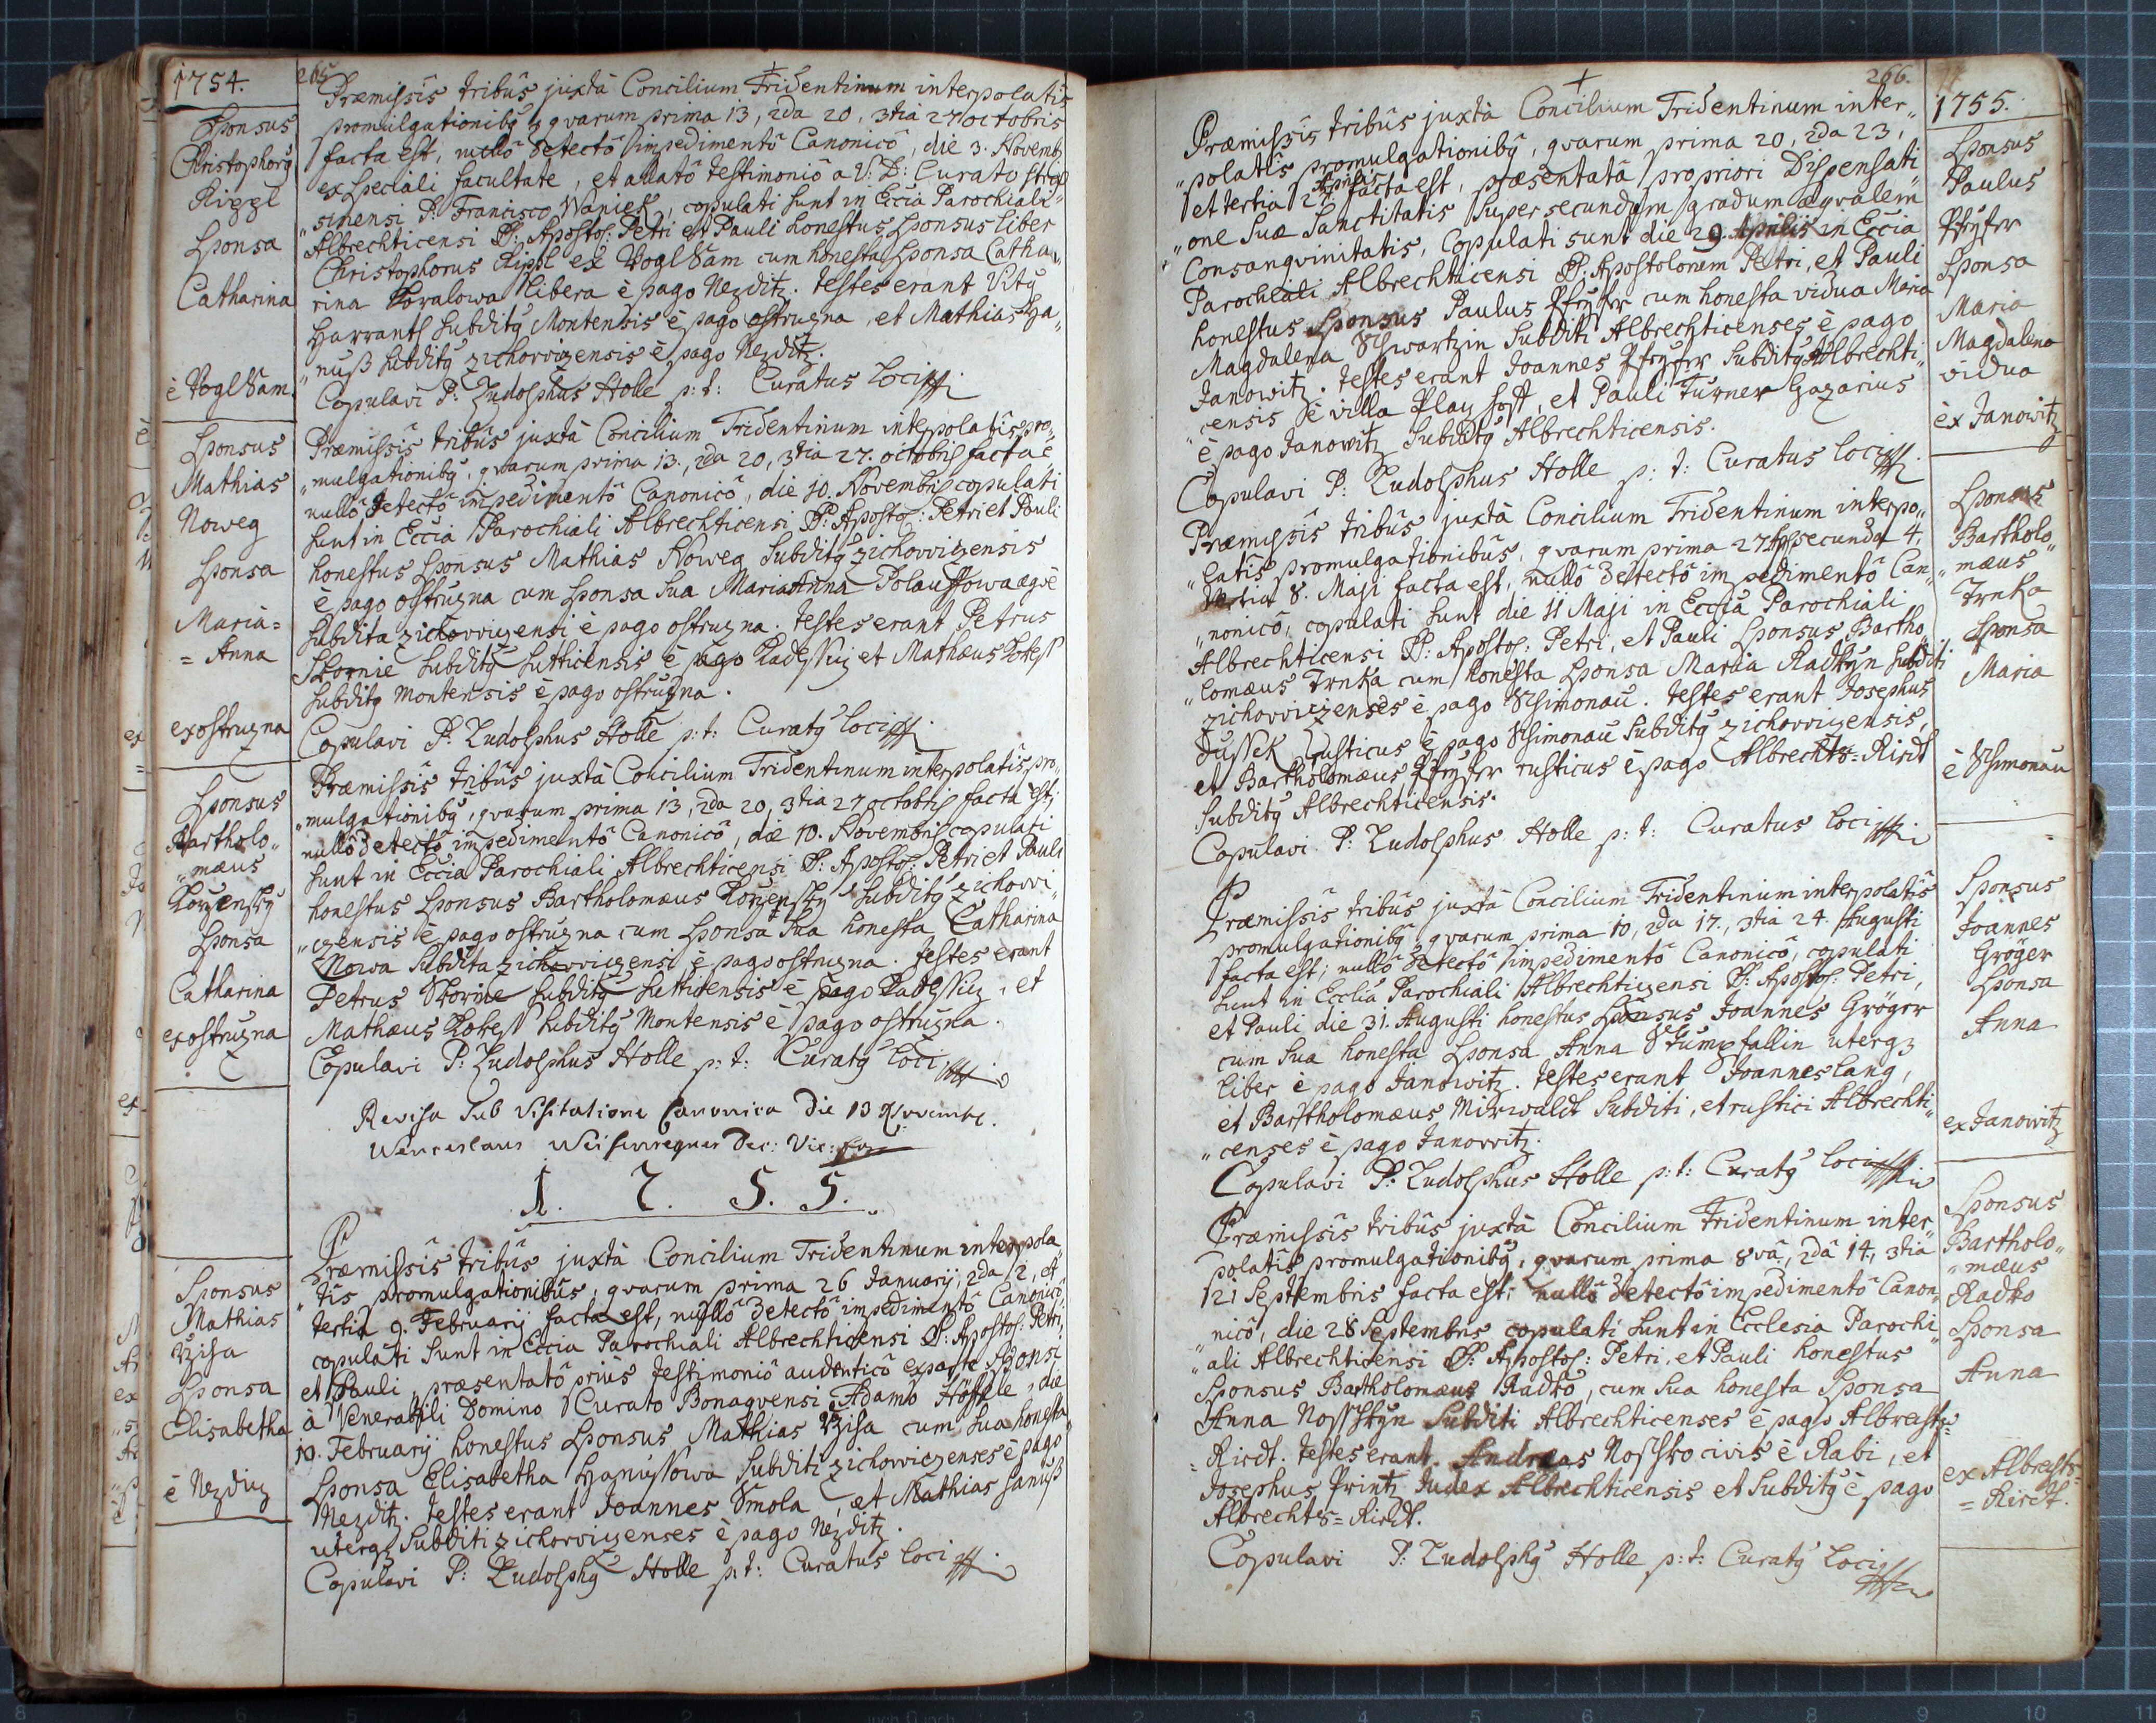 1754.
265
Sponsus
Christophorq
Rippl
Sponsa
Catharina
è Voglsam.
Præmissis tribûs juxtà Concilium Tridentinum interpolatis
promulgationibq quarum prima 13, 2da 20, 3tia 27 octobris
facta est, nullô detectô impedimentô Canonicô, die 3. Novemb
ex speciali facultate, et allatô testimoniô a V: D: Curato
sinensi P. Francisco Waniek, copulati sunt in Eccia Parochiali
Albrechticensi SS: Apostol: Petri et Pauli honestus Sponsus liber
Christophorus Rippl ex Voglsam cum honesta Sponsa Catha„
rina Kovalowa libera è pago Nezditz. testes erant Vitq
Harrant subditq Montensis è pago ostruzna, et Mathias Ha„
„nuß subditq zichovvizensis è pago Nezditz.
Copulavi P. Ludolphus Holle p: t: Curatus loci
Sponsus
Mathias
Noweg
Sponsa
Maria=
= Anna
ex ostruzna
Præmissis tribûs juxtà Concilium Tridentinum interpolatis pro„
„mulgationibq, quarum prima 13., 2da 20, 3tia 27. octobris facta ê
nullô detectô impedimentô Canonicô, die 10. Novembris copulati
sunt in Eccia Parochiali Albrechticensi SS: Apostol: Petri et Pauli
honestus Sponsus Mathias Noweg subditq zichovvizensis
è pago ostruzna cum Sponsa sua Maria Anna Polauffowa æqè
subdita zichovvizensi è pago ostruzna. testes erant Petrus
Skornie subditq Sutticensis è pago Radessiz et Mathæus Kokess
subditq Montensis è pago ostruzna.
Copulavi P. Ludolphus Holle p: t: Curatq loci
Sponsus
Bartholo„
„mæus
Korzensky
Sponsa
Catharina
ex ostruzna
Præmissis tribûs juxtà Concilium Tridentinum interpolatis pro„
„mulgationibq, quarum prima 13, 2da 20, 3tia 27 octobris facta est,
nullô detectô impedimentô Canonicô, die 10. Novembris copulati
sunt in Eccia Parochiali Albrechticensi SS: Apostol: Petri et Pauli
honestus Sponsus Bartholomæus Korzensky subditq zichovvi„
„zensis è pago ostruzna cum Sponsa sua honesta Catharina
Nowa subdita zichovvizensi è pago ostruzna. testes erant
Petrus Skornie subditq Sutticensis è pago Radessiz, et
Mathæus Kokess subditq Montensis è pago ostruzna.
Copulavi P: Ludolphus Holle p: t: Curatq loci
Revisa sub Visitatione Canonica die 13 Novembr.
Wenceslaus Dec: Vic: for
1. 7. 5. 5.
Sponsus
Mathias
Sponsa
Elisabetha
è Nezdiz
Præmissis tribûs juxtà Concilium Tridentinum interpola„
„tis promulgationibûs, quarum prima 26 Januarij, 2da 2, et
tertia 9. Februarij facta est, nullô detectô impedimentô Canonicô,
copulati sunt in Eccia Parochiali Albrechticensi SS: Apostol: Petri,
et Pauli, præsentatô priùs testimoniô audenticô ex parte Sponsi
à Venerabili Domino Curato Bonaquensi Adamo Höffele, die
10. Februarij honestus Sponsus Mathias cum sua honesta
Sponsa Elisabetha Hanussowa subditi zichowiczenses è pago
Nezditz. testes erant Joannes Smola, et Mathias Hanuß
uterqz subditi zichovvizenses è pago Nezditz.
Copulavi P: Ludolphq Holle p: t: Curatus loci
266.
1755.
Præmissis tribûs juxtà Concilium Tridentinum inter„
„polatis promulgationibq, quarum prima 20, 2da 23,
et tertia 27 Aprilis facta est, præsentatâ propriori Dispensati
„one Suæ Sanctitatis super secundum gradum æqvalem
Consanqvinitatis, copulati sunt die 29. Aprilis in Eccia
Parochiali Albrechticensi SS: Apostolorum Petri, et Pauli
honestus Sponsus Paulus Pfeyfer cum honesta vidua Maria
Magdalena Schwartzin subditi Albrechticenses è pago
Janowitz. testes erant Joannes Pfeyfer subditq Albrechti„
„censis è villa Play hoff, et Pauli Turner Gazarius
è pago Janowitz subditq Albrechticensis.
Copulavi P: Ludolphus Holle p: t: Curatus loci
Sponsus
Paulus
Pfeyfer
Sponsa
Maria
Magdalena
vidua
èx Janowitz
Præmissis tribûs juxtà Concilium Tridentinum interpo„
„latis promulgationibûs, quarum prima 27 Ap secunda 4,
tertia 8. Maji facta est, nullô detectô impedimentô Can„
„nonicô, copulati sunt die 11 Maji in Eccia Parochiali
Albrechticensi SS: Apostol: Petri, et Pauli Sponsus Bartho„
„lomæus Trnka cum honesta Sponsa Maria Radkyn subditi
zichovvizenses è pago Schimonau. testes erant Josephus
Dussek rusticus è pago Schimonau subditq zichovvizensis,
et Bartholomæus Pfeyfer rusticus è pago Albrechts=Riedt
subditq Albrechticensis.
Copulavi P: Ludolphus Holle p: t: Curatus loci
Sponsus
Bartholo„
„mæus
Trnka
Sponsa
Maria
è Schimonau
Præmissis tribûs juxtà Concilium Tridentinum interpolatis
promulgationibq, quarum prima 10, 2da 17., 3tia 24. Augusti
facta est; nullô detectô impedimentô Canonicô, copulati
sunt in Ecclia Parochiali Albrechtizensi SS: Apostol: Petri,
et Pauli die 31. Augusti honestus Sponsus Joannes Gröger
cum sua honesta Sponsa Anna Stumpfallin uterqz
liber è pago Janowitz. testes erant Joannes Lang,
et Barstholomæus Mirwaldt subditi, et rustici Albrechti„
„censes è pago Janovvitz.
Copulavi P: Ludolphus Holle p: t: Curatq loci
Sponsus
Joannes
Gröger
Sponsa
Anna
ex Janowitz
Præmissis tribûs juxtà Concilium Tridentinum inter„
polatis promulgationibq, quarum prima 8vâ, 2dâ 14, 3tiâ
21 Septembris facta est; nullô detectô impedimentô Canon„
nicô, die 28 Septembris copulati sunt in Ecclesia Parochi„
„ali Albrechticensi SS: Apostol: Petri, et Pauli honestus
Sponsus Bartholomæus Radko, cum sua honesta Sponsa
Anna Nosschkyn subditi Albrechticenses è pago Albrechts=
=Riedt. testes erant. Andreas Noschko civis è Rabi, et
Josephus Printz Judex Albrechticensis et subditq è pago
Albrechts=Riedt.
Copulavi P: Ludolphq Holle p: t: Curatq loci
Sponsus
Bartholo„
„mæus
Radko
Sponsa
Anna
ex Albrechts=
=Riedt.